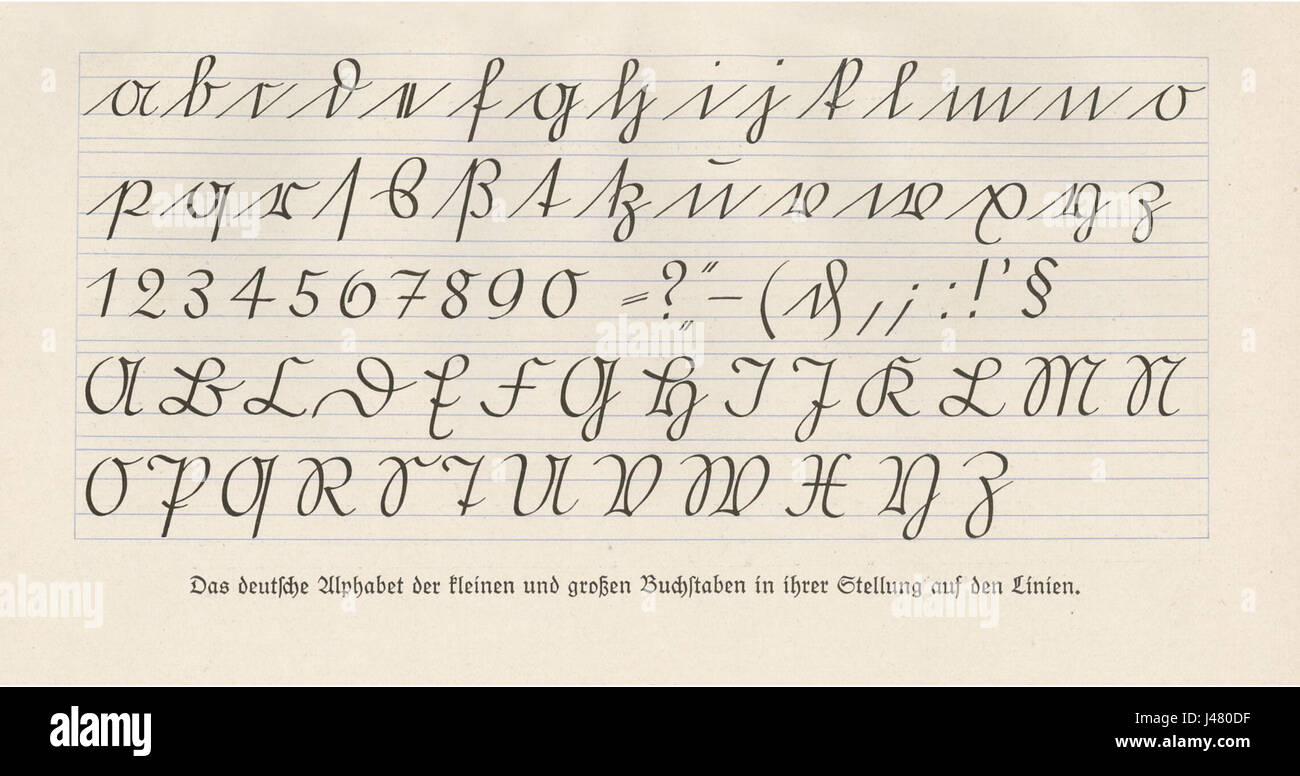 a b c d e f g h i j k l m n o
p q r ſ s ß t tz u v w x y z
1 2 3 4 5 6 7 8 9 0 = ? „ “ – ( & , ; : ! ’ §
A B C D E F G H I J K L M N
O P Q R S T U V W X Y Z
Das deutſche Alphabet der kleinen und großen Buchſtaben in ihrer Stellung auf den Linien.
alamy stock photo
J480DF
www.alamy.com